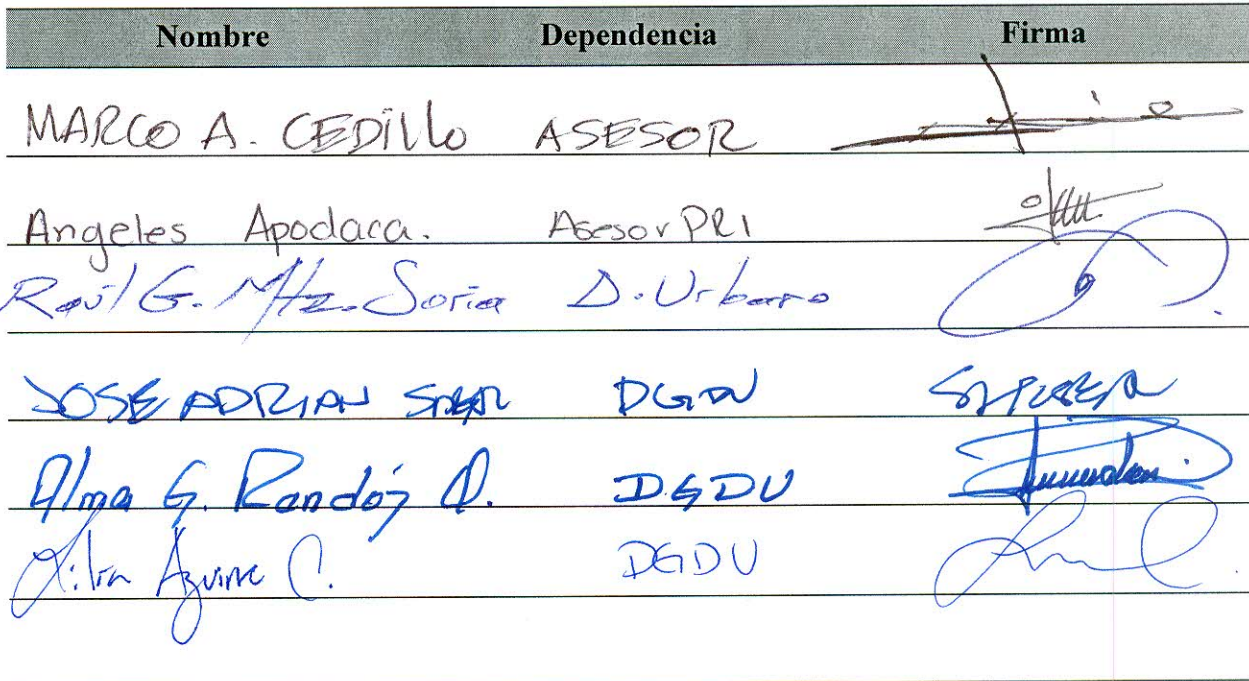 Nombre Dependencia Firma
MARCO A. CEDILLO ASESOR
Angeles Apodaca. Asesor PRI
Raúl G. Mtz. Soria D. Urbano
JOSE ADRIAN DGDU
Alma G. Rendón Q. DGDU
Lilia Aguirre C. DGDU